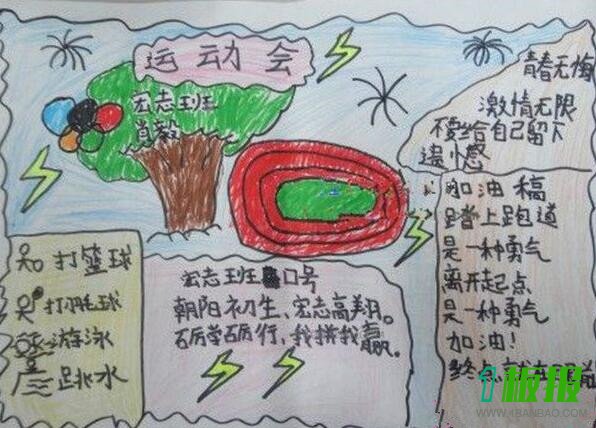 运动会
宏志班
肖
青春无悔
激情无限
不要给自己留下
遗憾
加油稿
踏上跑道
是一种勇气
离开起点
是一种勇气
加油!
终点就在
打篮球
打羽毛球
游泳
跳水
宏志班口号
朝阳初生、宏志高翔。
砺学砺行,我拼我赢。
1板报
WWW.1BANBAO.COM